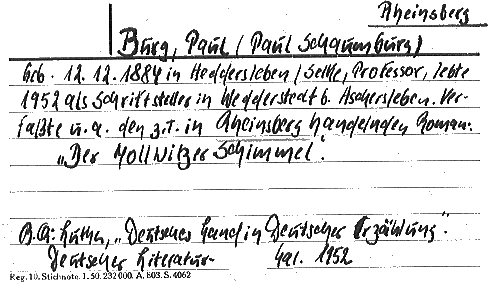 Rheinsberg
Burg, Paul (Paul Schaumburg)
Geb. 12.12.1884 in Heddersleben / Selke, Professor, lebte
1952 als Schriftsteller in Wedderstedt b. Aschersleben. Ver-
faßte u.a. den z.T. in Rheinsberg handelnden Roman:
„Der Mollwitzer Schimmel".
Luther, „Deutsches Land in Deutscher Erzählung".
Deutscher Literatur- Kal. 1952
Reg. 10. Stichnote. 1. 50. 232000. A. 803. S. 4062